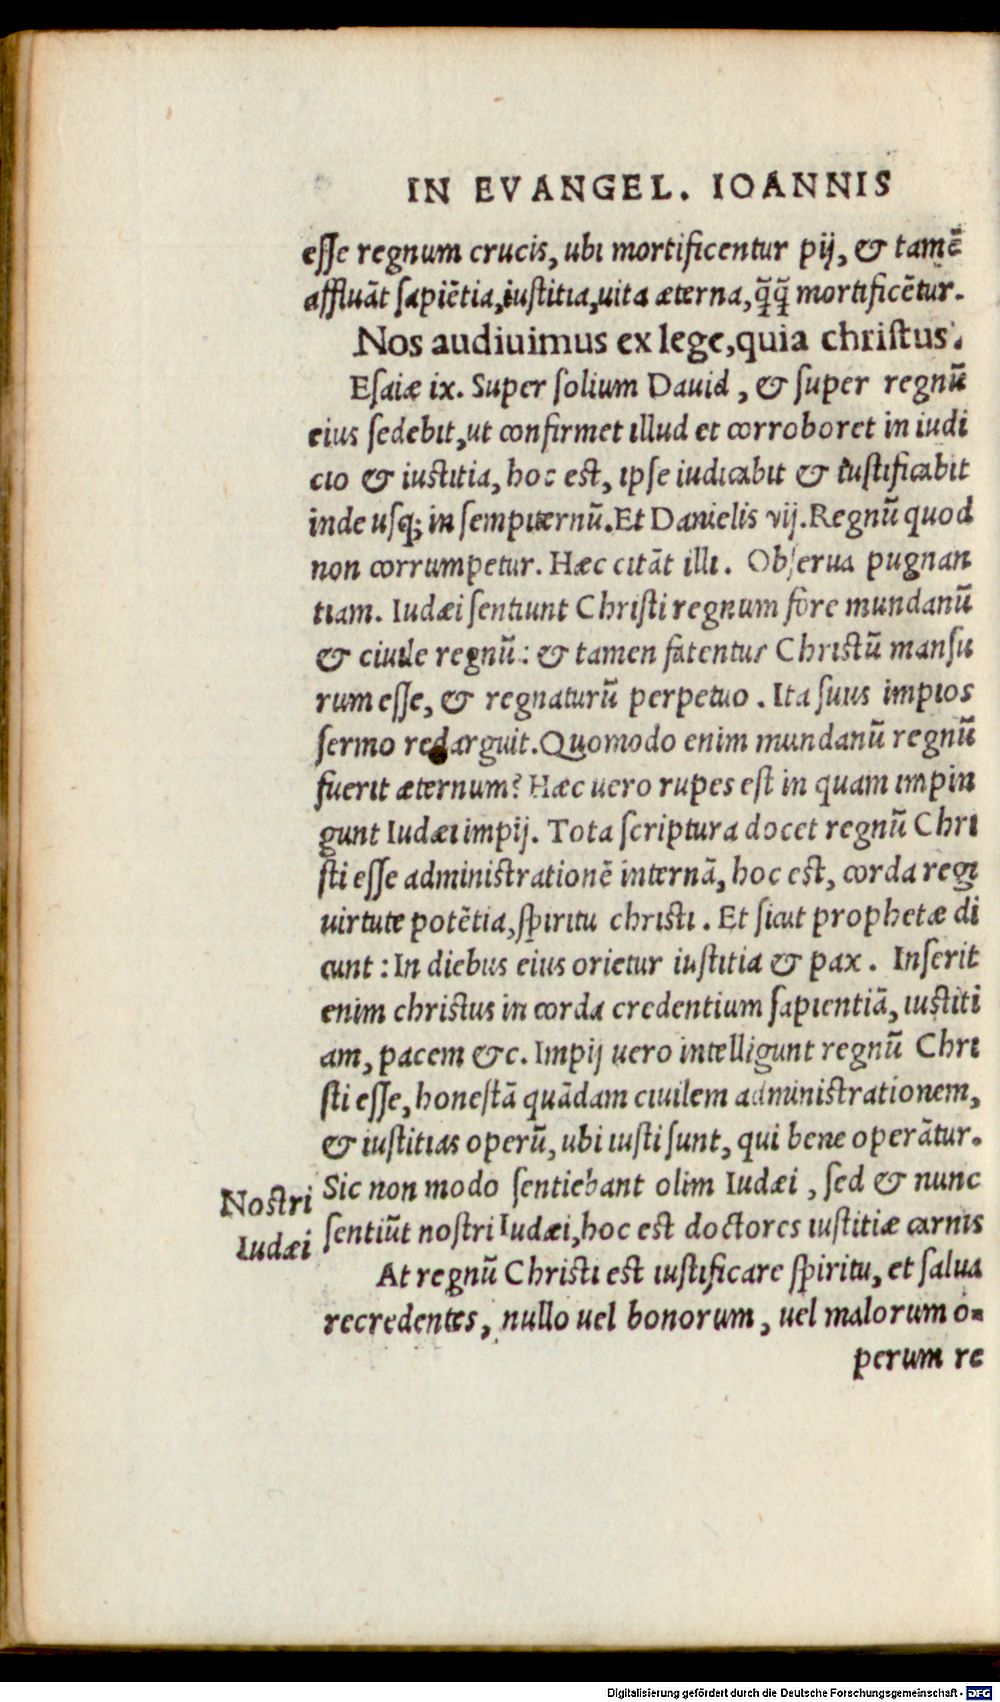 IN EVANGEL. IOANNIS
esse regnum crucis, ubi mortificentur pij, & tamē
affluāt sapiētia, iustitia, uita æterna, q̄q̄ mortificētur.
Nos audiuimus ex lege, quia christus.
Esaiæ ix. Super solium Dauid, & super regnū
eius sedebit, ut confirmet illud et corroboret in iudi
cio & iustitia, hoc est, ipse iudicabit & iustificabit
inde usq; in sempiternū. Et Danielis vij. Regnū quod
non corrumpetur. Hæc citāt illi. Obserua pugnan
tiam. Iudæi sentiunt Christi regnum fore mundanū
& ciuile regnū: & tamen fatentur Christū mansu
rum esse, & regnaturū perpetuo. Ita suus impios
sermo redarguit. Quomodo enim mundanū regnū
fuerit æternum? Hæc uero rupes est in quam impin
gunt Iudæi impij. Tota scriptura docet regnū Chri
sti esse administrationē internā, hoc est, corda regi
uirtute potētia, spiritu christi. Et sicut prophetæ di
cunt: In diebus eius orietur iustitia & pax. Inserit
enim christus in corda credentium sapientiā, iustiti
am, pacem &c. Impij uero intelligunt regnū Chri
sti esse, honestā quādam ciuilem administrationem,
& iustitias operū, ubi iusti sunt, qui bene operātur.
Sic non modo sentiebant olim Iudæi, sed & nunc
sentiūt nostri Iudæi, hoc est doctores iustitiæ carnis
Nostri
Iudæi
At regnū Christi est iustificare spiritu, et salua
recredentes, nullo uel bonorum, uel malorum o-
perum re
Digitalisierung gefördert durch die Deutsche Forschungsgemeinschaft - DFG